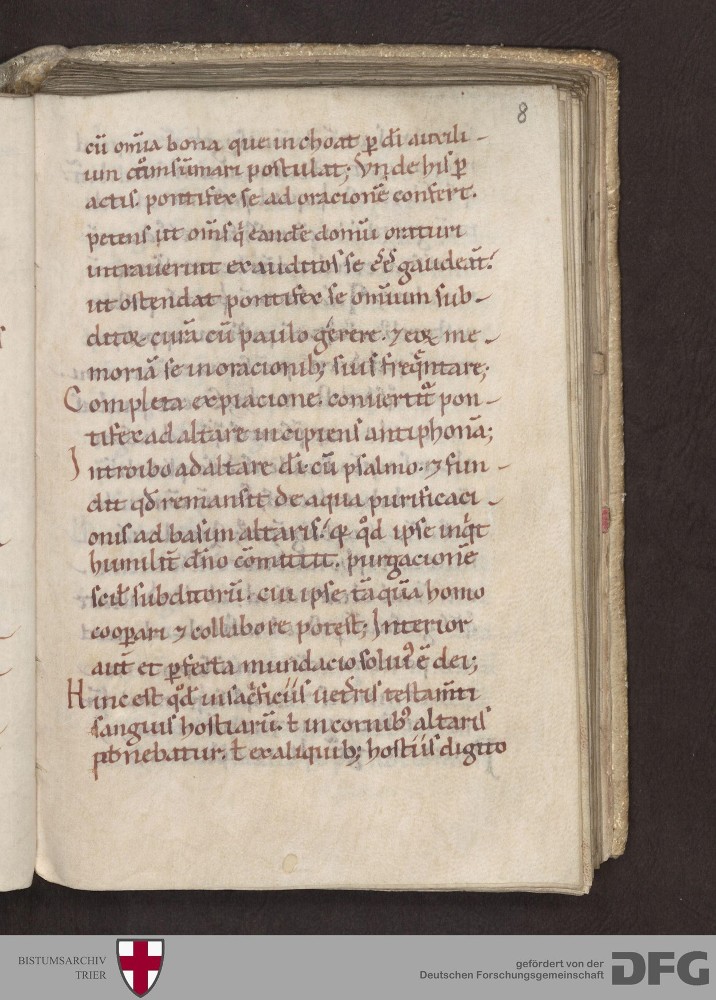 8
cū om̄ia bona que inchoat ꝑ dī auxili-
um cōnsūmari postulat; Vnde his ꝑ
actis. pontifex se ad oracionē confert.
petens ut om̄s q̇ eandē domū oraturi
intrauerint exauditos se eē gaudeāt.
ut ostendat pontifex se omīum sub-
ditoꝝ curā cū paulo gerere. ⁊ eoꝝ me-
moriā se in oracionibꝫ suis freq̄ntare;
Completa expiacione. conuertit᷑ pon-
tifex ad altare incipiens antiphonā;
Introibo ad altare dī. cū psalmo. ⁊ fun-
dit qđ remansit de aqua purificaci-
onis ad basim altaris. qͣ qđ ipse inq̇t
humilit̄ dn̄o cōmittit. purgacionē
scił subditorū. cui ipse tā quā homo
cooꝑari ⁊ collabore potest; Interior
aut̄ et ꝑfecta mundacio soliꝰ ē dei;
Hinc est qđ in saċficiis uet̄ris testam̄ti
sanguis hostiarū. ł in cornibꝰ altaris
p̄onebatur. ł ex aliquibꝫ hostiis digito
BISTUMSARCHIV
TRIER
gefördert von der
Deutschen Forschungsgemeinschaft
DFG